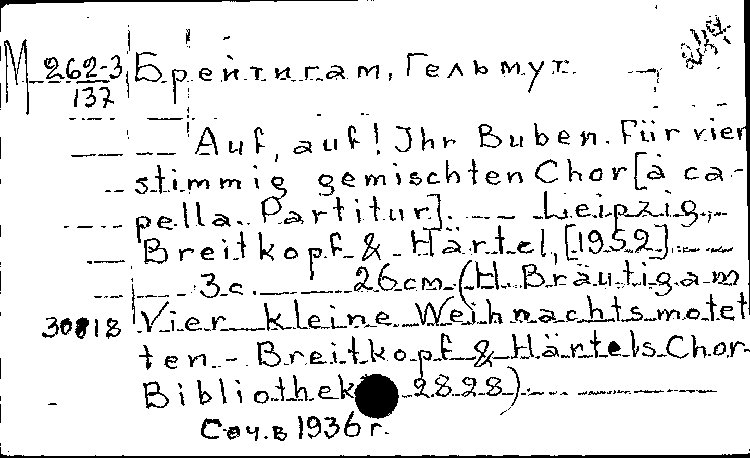 М 262-3/137 Брейтигам, Гельмут.
Auf, auf! Ihr Buben. Für vier
stimmig gemischten Chor [à ca-
pella. Partitur]. — Leipzig,
Breitkopf & Härtel, [1952].
3с. 26cm (H. Bräutigam
30818 Vier kleine Weihnachtsmotet
ten. - Breitkopf & Härtels Chor-
Bibliothek 2828)
Соч. в 1936 г.